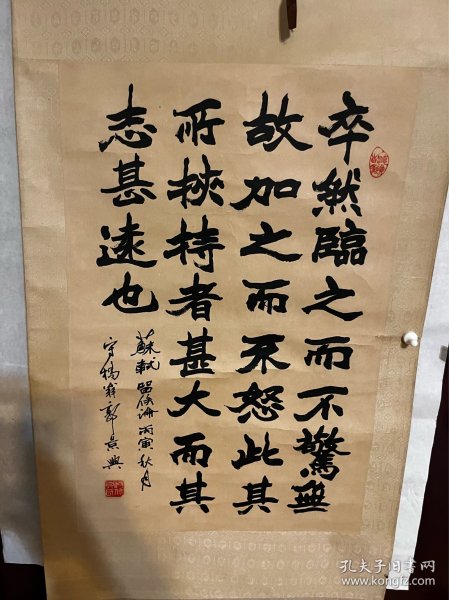 卒然臨之而不驚無
故加之而不怒此其
所挾持者甚大而其
志甚遠也
蘇軾留侯論丙寅秋月
郭景興
孔夫子旧书网
www.kongfz.com